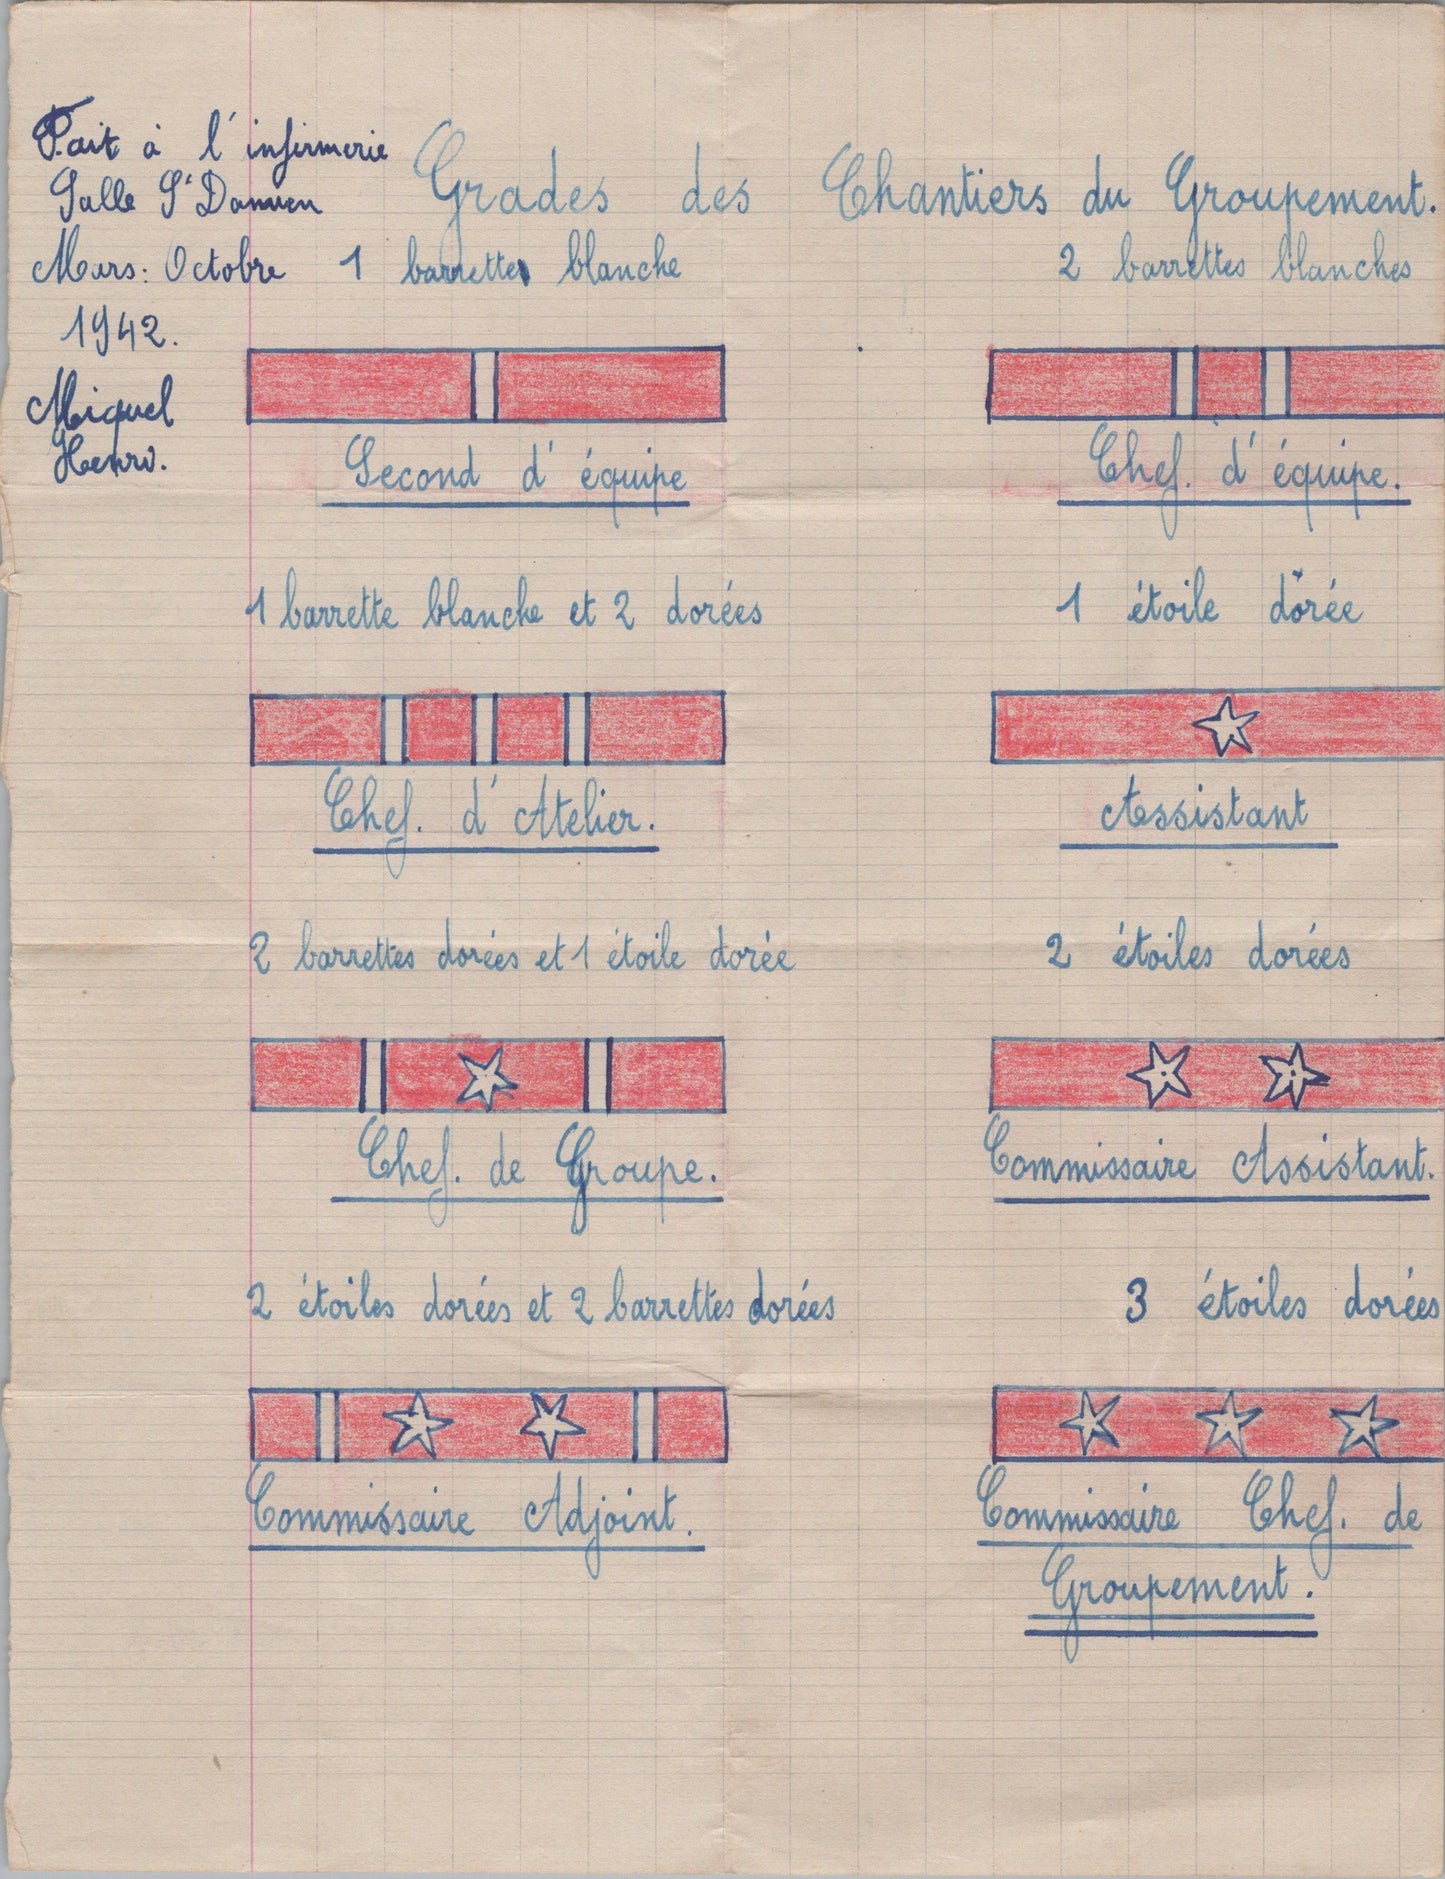 Fait à l'infirmerie
Salle St Damien
Mars: Octobre
1942.
Miquel
Henri.
Grades des Chantiers du Groupement.
1 barrette blanche
2 barrettes blanches
Second d'équipe
Chef. d'équipe.
1 barrette blanche et 2 dorées
1 étoile dorée
Chef. d'Atelier.
Assistant
2 barrettes dorées et 1 étoile dorée
2 étoiles dorées
Chef. de Groupe.
Commissaire Assistant.
2 étoiles dorées et 2 barrettes dorées
3 étoiles dorées
Commissaire Adjoint.
Commissaire Chef. de
Groupement.